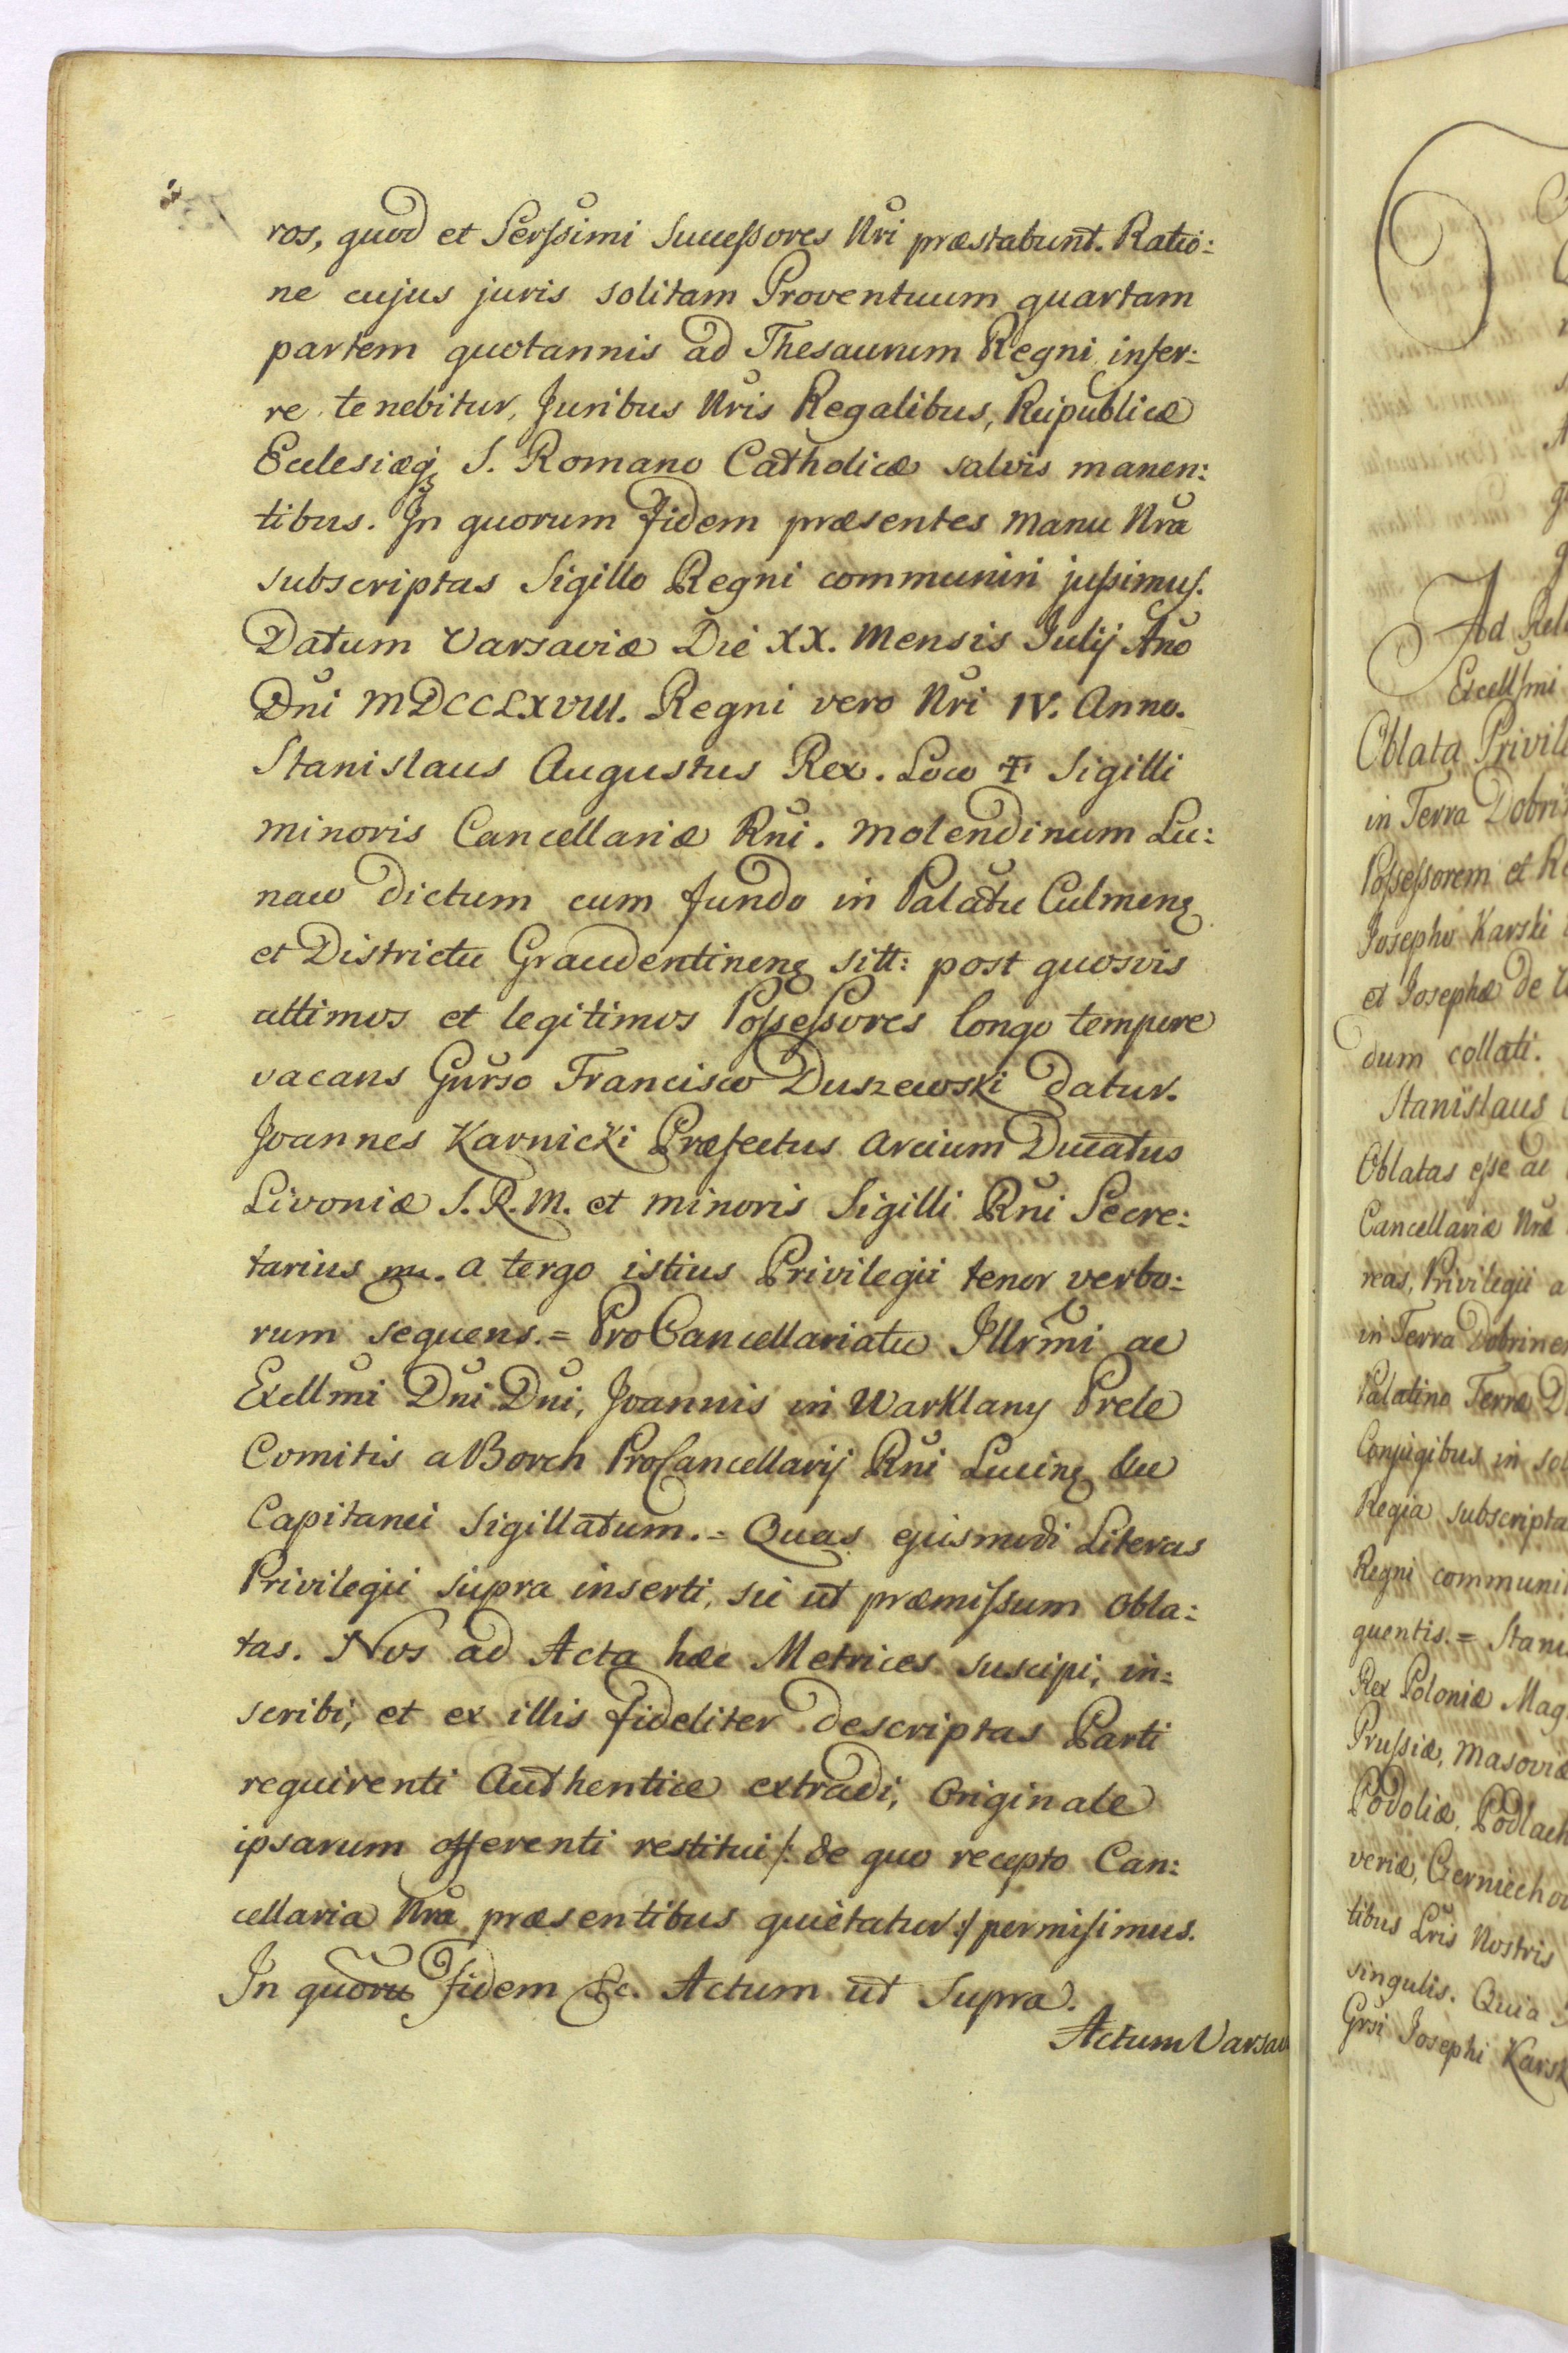 ros, quod et Serſsimi Succeſsores Nri præstabunt. Ratio:
ne cujus juris solitam Proventuum quartam
partem quotannis ad Thesaurum Regni infer:
re tenebitur, Juribus Nris Regalibus, Reipublicæ
Ecclesiæq; S. Romano Catholicæ salvis manen:
tibus. In quorum fidem præsentes manu Nra
subscriptas Sigillo Regni communiri juſsimus.
Datum Varsaviæ Die XX. Mensis Julij Año
Dni MDCCLXVIII. Regni vero Nri IV. Anno.
Stanislaus Augustus Rex. Loco ✝ Sigilli
minoris Cancellariæ Rni. Molendinum Lu:
naw dictum cum fundo in Palatu Culmens
et Districtu Graudentinens sitt: post quosvis
ultimos et legitimos Poſseſsores longo tempore
vacans Gnrso Francisco Duszewski datur.
Joannes Karnicki Præfectus Arcium Ducatus
Livoniæ S.R.M. et minoris Sigilli Rni Secre:
tarius mu. a tergo istius Privilegii tenor verbo:
rum sequens.= ProCancellariatu Illrmi ac
Excllmi Dni Dni, Joannis in Warklany Prele
Comitis a Borch ProCancellarij Rni Lucins &cc
Capitanei Sigillatum.= Quas ejusmodi Literas
Privilegii supra inserti, sic ut præmiſsum obla:
tas. Nos ad Acta hæc Metrices suscipi, in:
scribi, et ex illis fideliter descriptas Parti
requirenti Authentice extradi, Originale
ipsarum offerenti restitui /: de quo recepto Can:
cellaria Nra præsentibus quietatur :/ permisimus.
In quoru fidem &c. Actum ut Supra.
Actum Varsav
Ad Rela
Excellſmi
Oblata Privile
in Terra Dobri
Poſseſsorem et Re
Josepho Karski
et Josepha de
dum collati.
Stanislaus
Oblatas eſse ac
Cancellariæ Nræ
reas, Privilegii a
in Terra Dobrinen
Palatino Terræ D
Conjugibus in sol
Regia subscripta
Regni communi
quentis.= Stani
Rex Poloniæ Mag
Pruſsiæ, Masoviæ
Podoliæ, Podlach
veriæ, Czerniecho
tibus Lris Nostris
singulis. Quia
Grsi Josephi Karsk